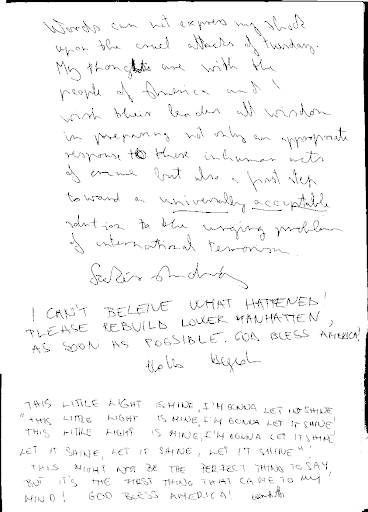 Words can not express my shock
upon the cruel attacks of Tuesday.
My thoughts are with the
people of America and I
wish their leaders all wisdom
in preparing not only an appropriate
response to these inhuman acts
of crime but also a first step
toward a universally acceptable
solution to the urging problem
of international terrorism.
I CAN'T BELEIVE WHAT HAPPENED!
PLEASE REBUILD LOWER MANHATTEN,
AS SOON AS POSSIBLE. GOD BLESS AMERICA!
THIS LITTLE LIGHT IS MINE, I'M GONNA LET IT SHINE
"THIS LITTLE LIGHT IS MINE, I'M GONNA LET IT SHINE
THIS LITTLE LIGHT IS MINE, I'M GONNA LET IT SHINE
LET IT SHINE, LET IT SHINE, LET IT SHINE".
THIS MIGHT NOT BE THE PERFECT THING TO SAY,
BUT IT'S THE FIRST THING THAT CAME TO MY
MIND! GOD BLESS AMERICA!